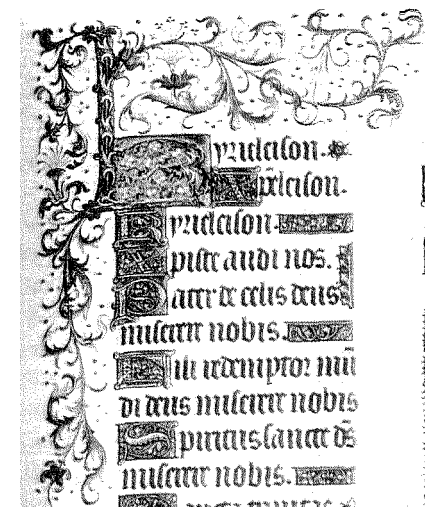 Kyrieleison.
Xp̄eleison.
Kyrieleison.
Xpiste audi nos.
Pater de celis deus
miserere nobis.
Fili redemptor mū
di deus miserere nobis
Spiritus sancte d̄s
miserere nobis.
Sancta trinitas